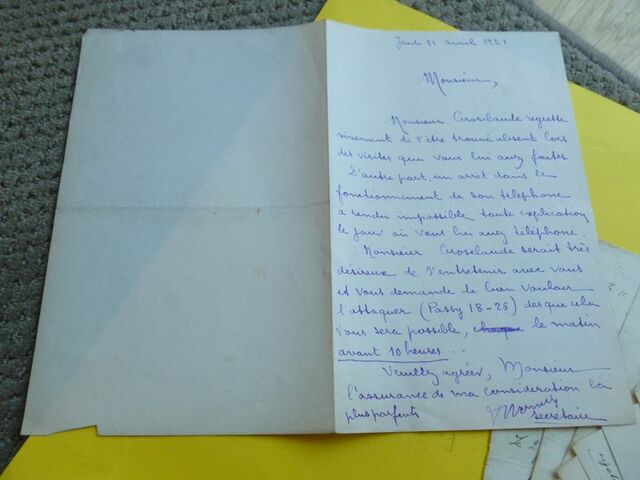 Jeudi 21 avril 1921
Monsieur,
Monsieur Grosclaude regrette
vivement de s'être trouvé absent lors
des visites que vous lui avez faites.
D'autre part, un arret dans le
fonctionnement de son telephone
a rendu impossible toute explication
le jour où vous lui avez téléphone.
Monsieur Grosclaude serait très
désireux de s'entretenir avec vous
et vous demande de bien vouloir
l'attaquer (Passy 18-26) des que cela
vous sera possible, le matin
avant 10 heures...
Veuillez agréer, Monsieur
l'assurance de ma consideration la
plus parfaite
secretaire